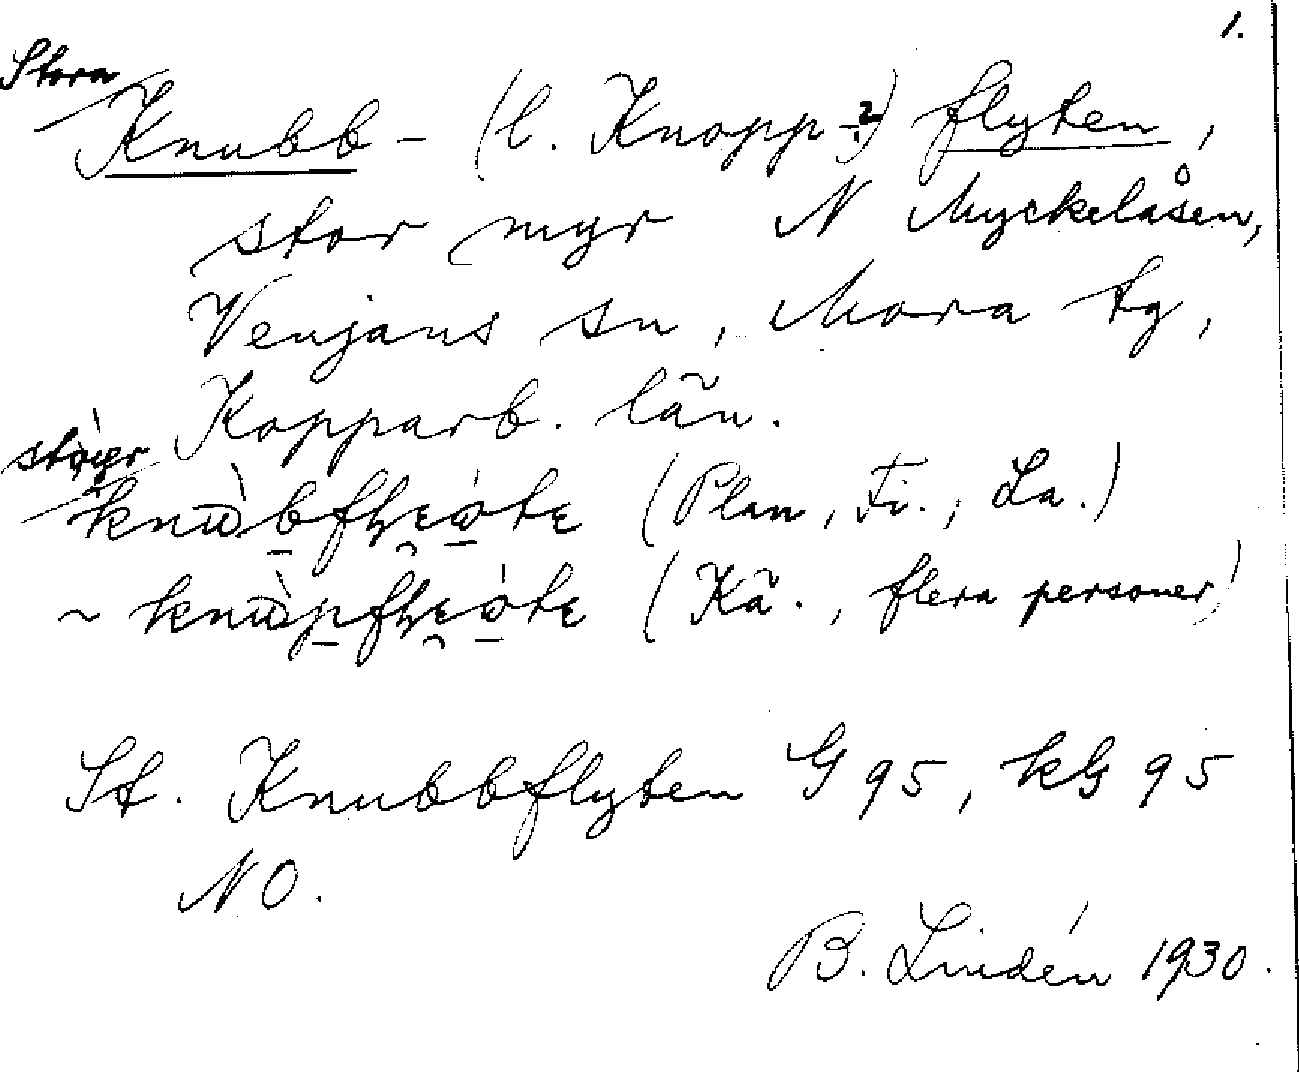 1.
Stora
Knubb- (l. Knopp-) flyten,
stor myr N Myckelåsen,
Venjans sn, Mora tg,
Kopparb. län.
(Plan, Fi., La.)
~ (Kä., flera personer)
St. Knubbflyten G 95, kG 95
NO.
B. Lindén 1930.